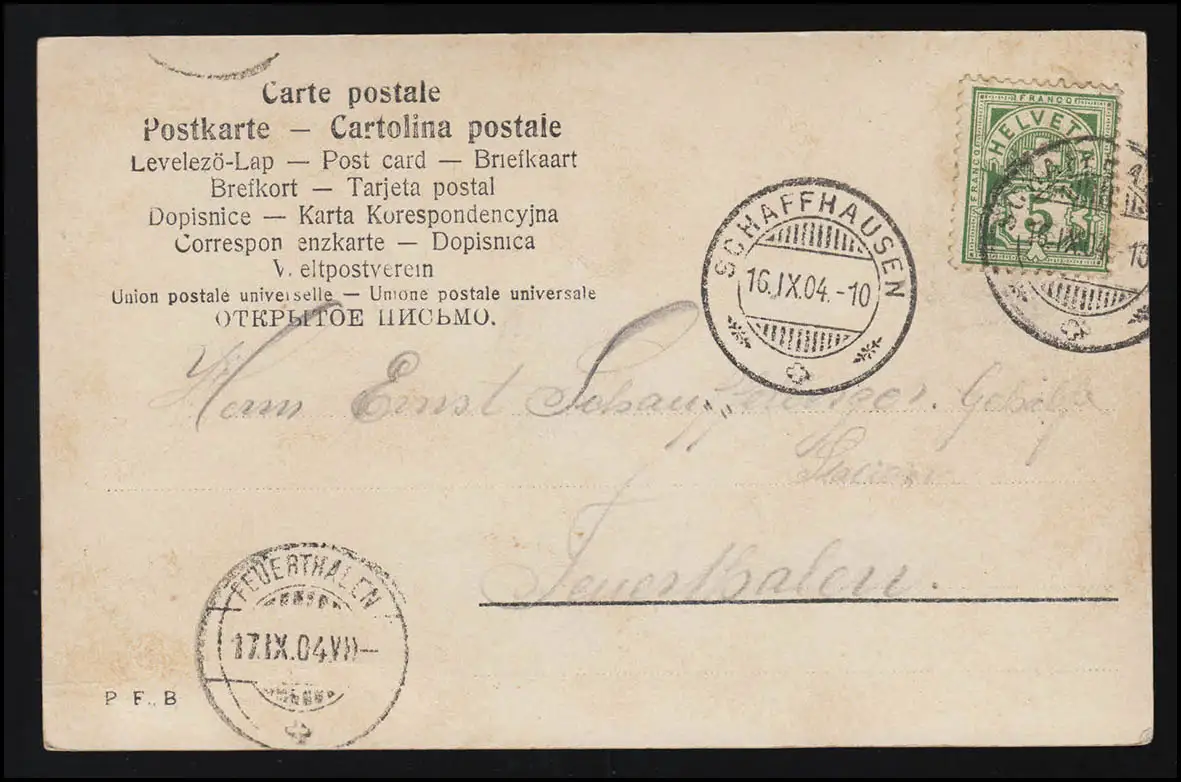 Carte postale
Postkarte — Cartolina postale
Levelező-Lap — Post card — Briefkaart
Brefkort — Tarjeta postal
Dopisnice — Karta Korespondencyjna
Correspon enzkarte — Dopisnica
Weltpostverein
Union postale universelle — Unione postale universale
ОТКРЫТОЕ ПИСЬМО.
FRANCO
FRANCO
HELVETIA
5
SCHAFFHAUSEN
16.IX.04.-10
16.IX.04. 10
Herrn Ernst
Feuerthalen.
FEUERTHALEN
17.IX.04.VII—
P. F. B